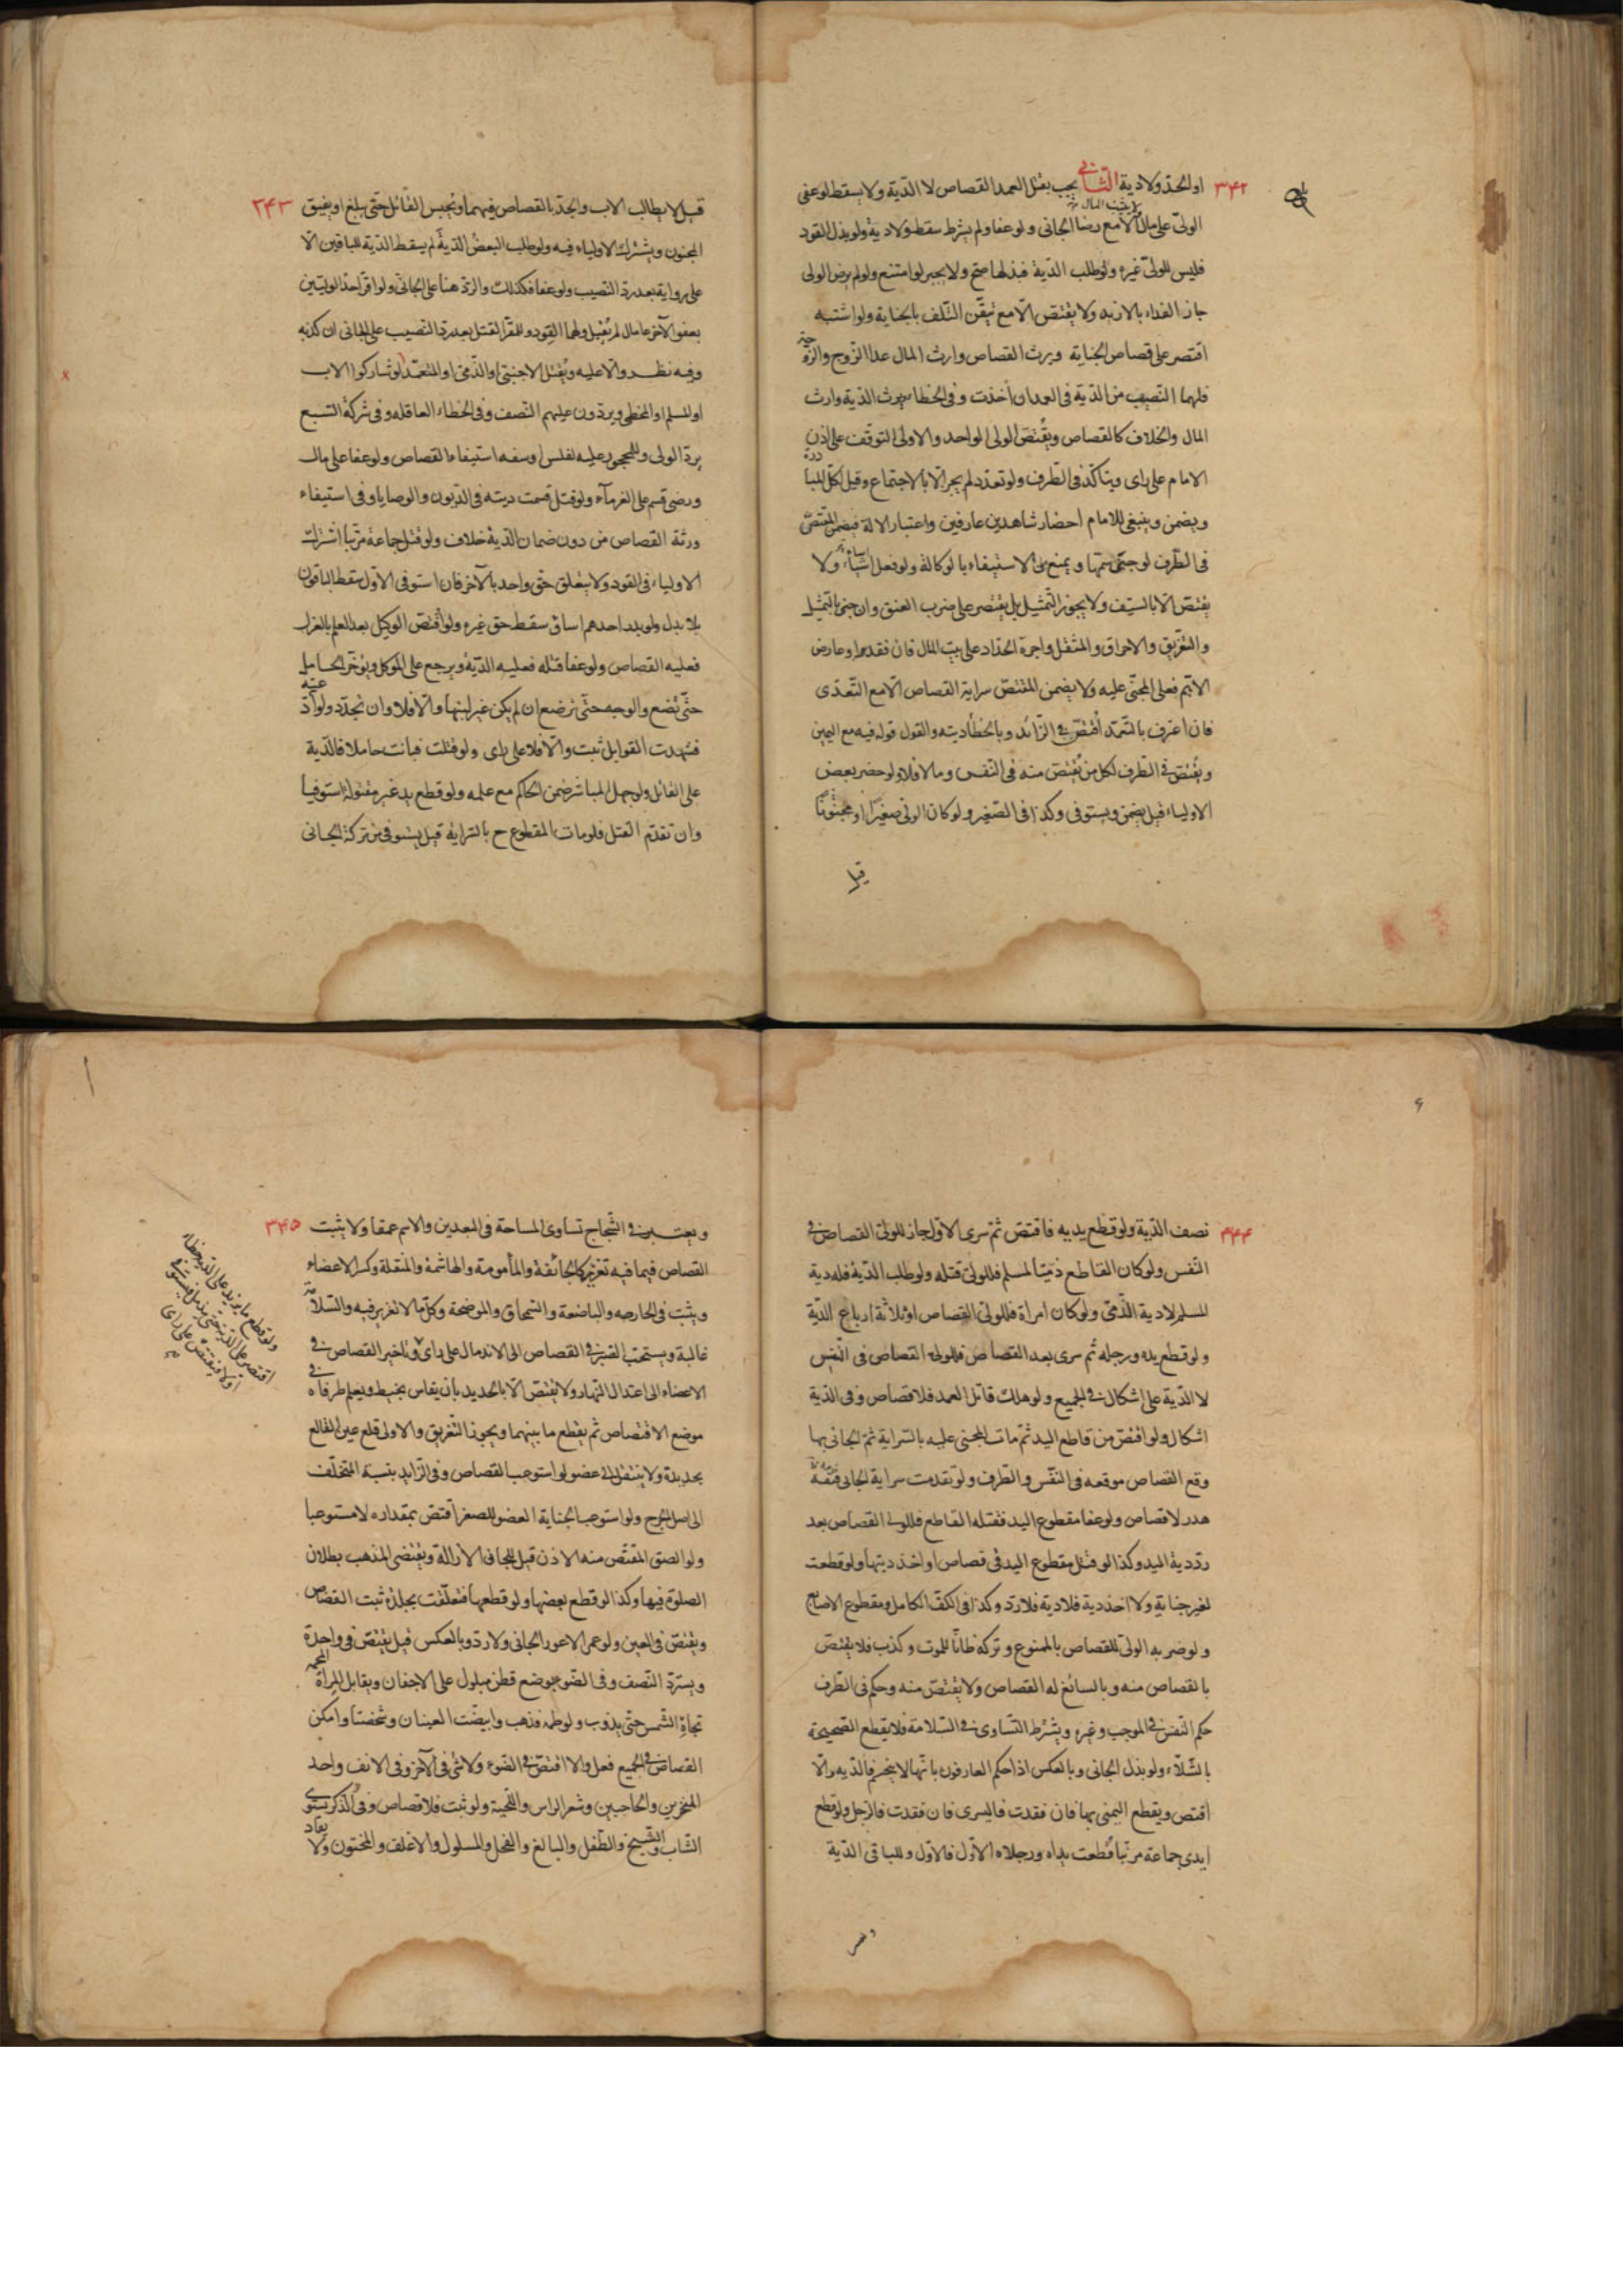 ۳۴۲
او الحد ولا دية الثاني يجب بقتل العمد القصاص لا الدية ولا يسقط لو عفى
الولي على مال الا مع رضا الجاني ولو عفا ولم يشرط سقط ولا دية ولو بذل القود
فليس للولي غيره ولو طلب الدية فبذلها صح ولا يجبر لو امتنع ولو لم يرض الولي
جاز الفداء بالازيد ولا يقتص الا مع تيقن التلف بالجناية ولو اشتبه
اقتصر على قصاص الجناية ويرث القصاص وارث المال عدا الزوج والزوجة
فلهما النصيب من الدية في العمد ان اخذت وفي الخطاء ويرث الدية وارث
المال والخلاف كالقصاص ويقتص الولي الواحد والاولى التوقف على اذن
الامام على راى ويتأكد في الطرف ولو تعدد لم يجز الا بالاجتماع وقيل لكل المبادرة
ويضمن وينبغي للامام احضار شاهدين عارفين واعتبار الالة فيضمن المقتص
في الطرف لو جنى بسمها ويمنع من الاستيفاء بالوكالة ولو فعل اساء ولا
يقتص الا بالسيف ولا يجوز التمثيل بل يقتصر على ضرب العنق وان جنى بالتمثيل
والتغريق والاحراق والمثقل واجرة الحداد على بيت المال فان فقد او عارض
الاهم فعلى المجني عليه ولا يضمن المقتص سراية القصاص الا مع التعدى
فان اعترف بالتعمد اقتص في الزائد وبالخطأ ديته والقول قوله فيه مع اليمين
ويقتص في الطرف لكل من يقتص منه في النفس وما لا فلا ولو حضر بعض
الاولياء قيل يضمن ويستوفى وكذا في الصغير ولو كان الولي صغيرا او مجنونا
قيل
۳۴۳
قيل لا يطالب الاب والجد بالقصاص فيهما ويحبس القاتل حتى يبلغ او يفيق
المجنون ويشترك الاولياء فيه ولو طلب البعض الدية لم يسقط الدية للباقين الا
على رواية بعد رد النصيب ولو عفا فكذلك والرد هنا على الجاني ولو اقر احد الوليين
بعفو الآخر على مال لم يقبل ولهما القود وللمقر القتل بعد رد النصيب على الجاني ان كذبه
وفيه نظر والا عليه ويقتل الاجنبي او الذمي او المتعمد لو شاركوا الاب
او المسلم او المخطي ويردون عليهم النصف وفي الخطاء العاقله وفي شركة السبع
يرد الولى وللمحجور عليه لفلس او سفه استيفاء القصاص ولو عفا على مال
ورضى قسم على الغرماء ولو قتل قسمت ديته في الديون والوصايا وفي استيفاء
ورثة القصاص من دون ضمان الدية خلاف ولو قتل جماعة مرتبا اشترك
الاولياء في القود ولا يتعلق حق واحد بالآخر فان استوفى الاول سقط الباقون
بلا بدل ولو بدر احدهم اساء وسقط حق غيره ولو اقتص الوكيل بعد العلم بالعزل
فعليه القصاص ولو عفا قبله فعليه الدية ويرجع على الموكل ويؤخر الحامل
حتى تضع والوجه حتى ترضع ان لم يكن غير لبنها والا فلا وان تجدد ولو ادعته
فشهدت القوابل ثبت والا فلا على راى ولو قتلت فبانت حاملا فالدية
على القاتل ولو جهل المباشر ضمن الحاكم مع علمه ولو قطع يد غير مقتوله استوفيا
وان تقدم القتل فلو مات المقطوع ح بالسراية قيل يستوفي من تركة الجاني
۳۴۴
نصف الدية ولو قطع يديه فاقتص ثم سرى الاول جاز للولي القصاص في
النفس ولو كان القاطع ذميا لمسلم فللولي قتله ولو طلب الدية فله دية
المسلم لا دية الذمي ولو كان امراة فللولي القصاص او ثلاثة ارباع الدية
ولو قطع يده ورجله ثم سرى بعد القصاص فللولي القصاص في النفس
لا الدية على اشكال في الجميع ولو هلك قاتل العمد فلا قصاص وفي الدية
اشكال ولو اقتص من قاطع اليد ثم مات المجنى عليه بالسراية ثم الجاني بها
وقع القصاص موقعه في النفس والطرف ولو تقدمت سراية الجاني
هدر لا قصاص ولو عفا مقطوع اليد فقتله القاطع فللولي القصاص بعد
رد دية اليد وكذا لو قتل مقطوع اليد في قصاص او اخذ ديتها ولو قطعت
لغير جناية ولا اخذ دية فلا دية فلا رد وكذا في الكف الكامل ومقطوع الاصابع
ولو ضربه الولى للقصاص بالممنوع وتركه ظانا للموت وكذب فلا يقتص
بالقصاص منه وبالسائغ له القصاص ولا يقتص منه وحكم في الطرف
حكم النفس في الموجب وغيره ويشرط التساوى في السلامة فلا يقطع الصحيحة
بالشلاء ولو بذل الجاني وبالعكس اذا حكم العارفون بانها لا ينحسم فالديه والا
اقتص ويقطع اليمنى بها فان فقدت فاليسرى فان فقدت فالرجل ولو قطع
ايدى جماعة مرتبا قطعت يداه ورجلاه الاول فالاول وللباقي الدية
۳۴۵
ويعتبر في الشجاج تساوى المساحة في البعدين والاسم عمقا ولا يثبت
القصاص فيما فيه تغرير كالجائفة والمأمومة والهاشمة والمنقلة وكسر الاعضاء
ويثبت في الحارصه والباضعة والسمحاق والموضحة وكلما لا تغرير فيه والسلامة
غالبة ويستحب الصبر في القصاص الى الاندمال على راى وتاخير القصاص في
الاعضاء الى اعتدال النهار ولا يقتص الا بالحديد بأن يقاس بخيط ويعلم طرفاه في
موضع الاقتصاص ثم يقطع ما بينهما ويجوز التفريق والاولى قلع عين القالع
بحديدة ولا ينتقل الى عضو لو استوعب القصاص وفي الزايد بنسبة المتخلف
الى اصل الجرح ولو استوعب الجناية العضو للصغر اقتص بمقداره لا مستوعبا
ولو الصق المقتص منه الاذن قيل للجاني الازالة ويقتضى المذهب بطلان
الصلوة فيها وكذا لو قطع بعضها ولو قطعها فتعلقت بجلدة ثبت القصاص
ويقتص في العين ولو عمى الاعور الجاني ولا رد وبالعكس قيل يقتص في واحدة
ويسترد النصف وفي الضوء بوضع قطن مبلول على الاجفان ويقابل المراة المحمية
تجاه الشمس حتى يذوب ولو لطمه فذهب وابيضت العينان وشخصتا وامكن
القصاص في الجميع فعل والا اقتص في الضوء ولا شئ في الآخر وفي الانف واحد
المنخرين والحاجبين وشعر الراس واللحية ولو نبت فلا قصاص وفي الذكر يستوى
الشاب والشيخ والطفل والبالغ والفحل والمسلول والاغلف والمختون ولا يقاد